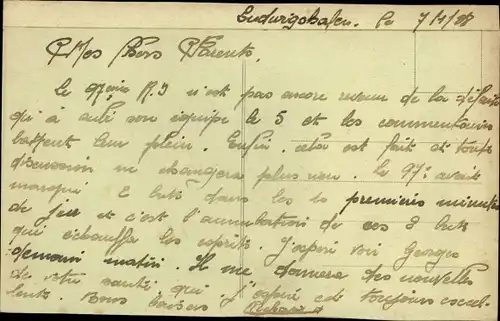 Ludwigshafen. le 7/1/28
Mes Chers Parents.
Le 97ème R.I n'est pas encore revenu de la défaite
qu'a subi son équipe le 5 et les commentaires
battent leur plein. Enfin. cela est fait et toute
discussion ne changera plus rien. le 97e avait
marqué 2 buts dans les 10 premières minutes
de jeu et c'est l'annulation de ces 2 buts
qui échauffa les esprits. J'espère voir Georges
demain matin. Il me donnera des nouvelles
de votre santé qui j'espère est toujours excel-
lente. Bons baisers